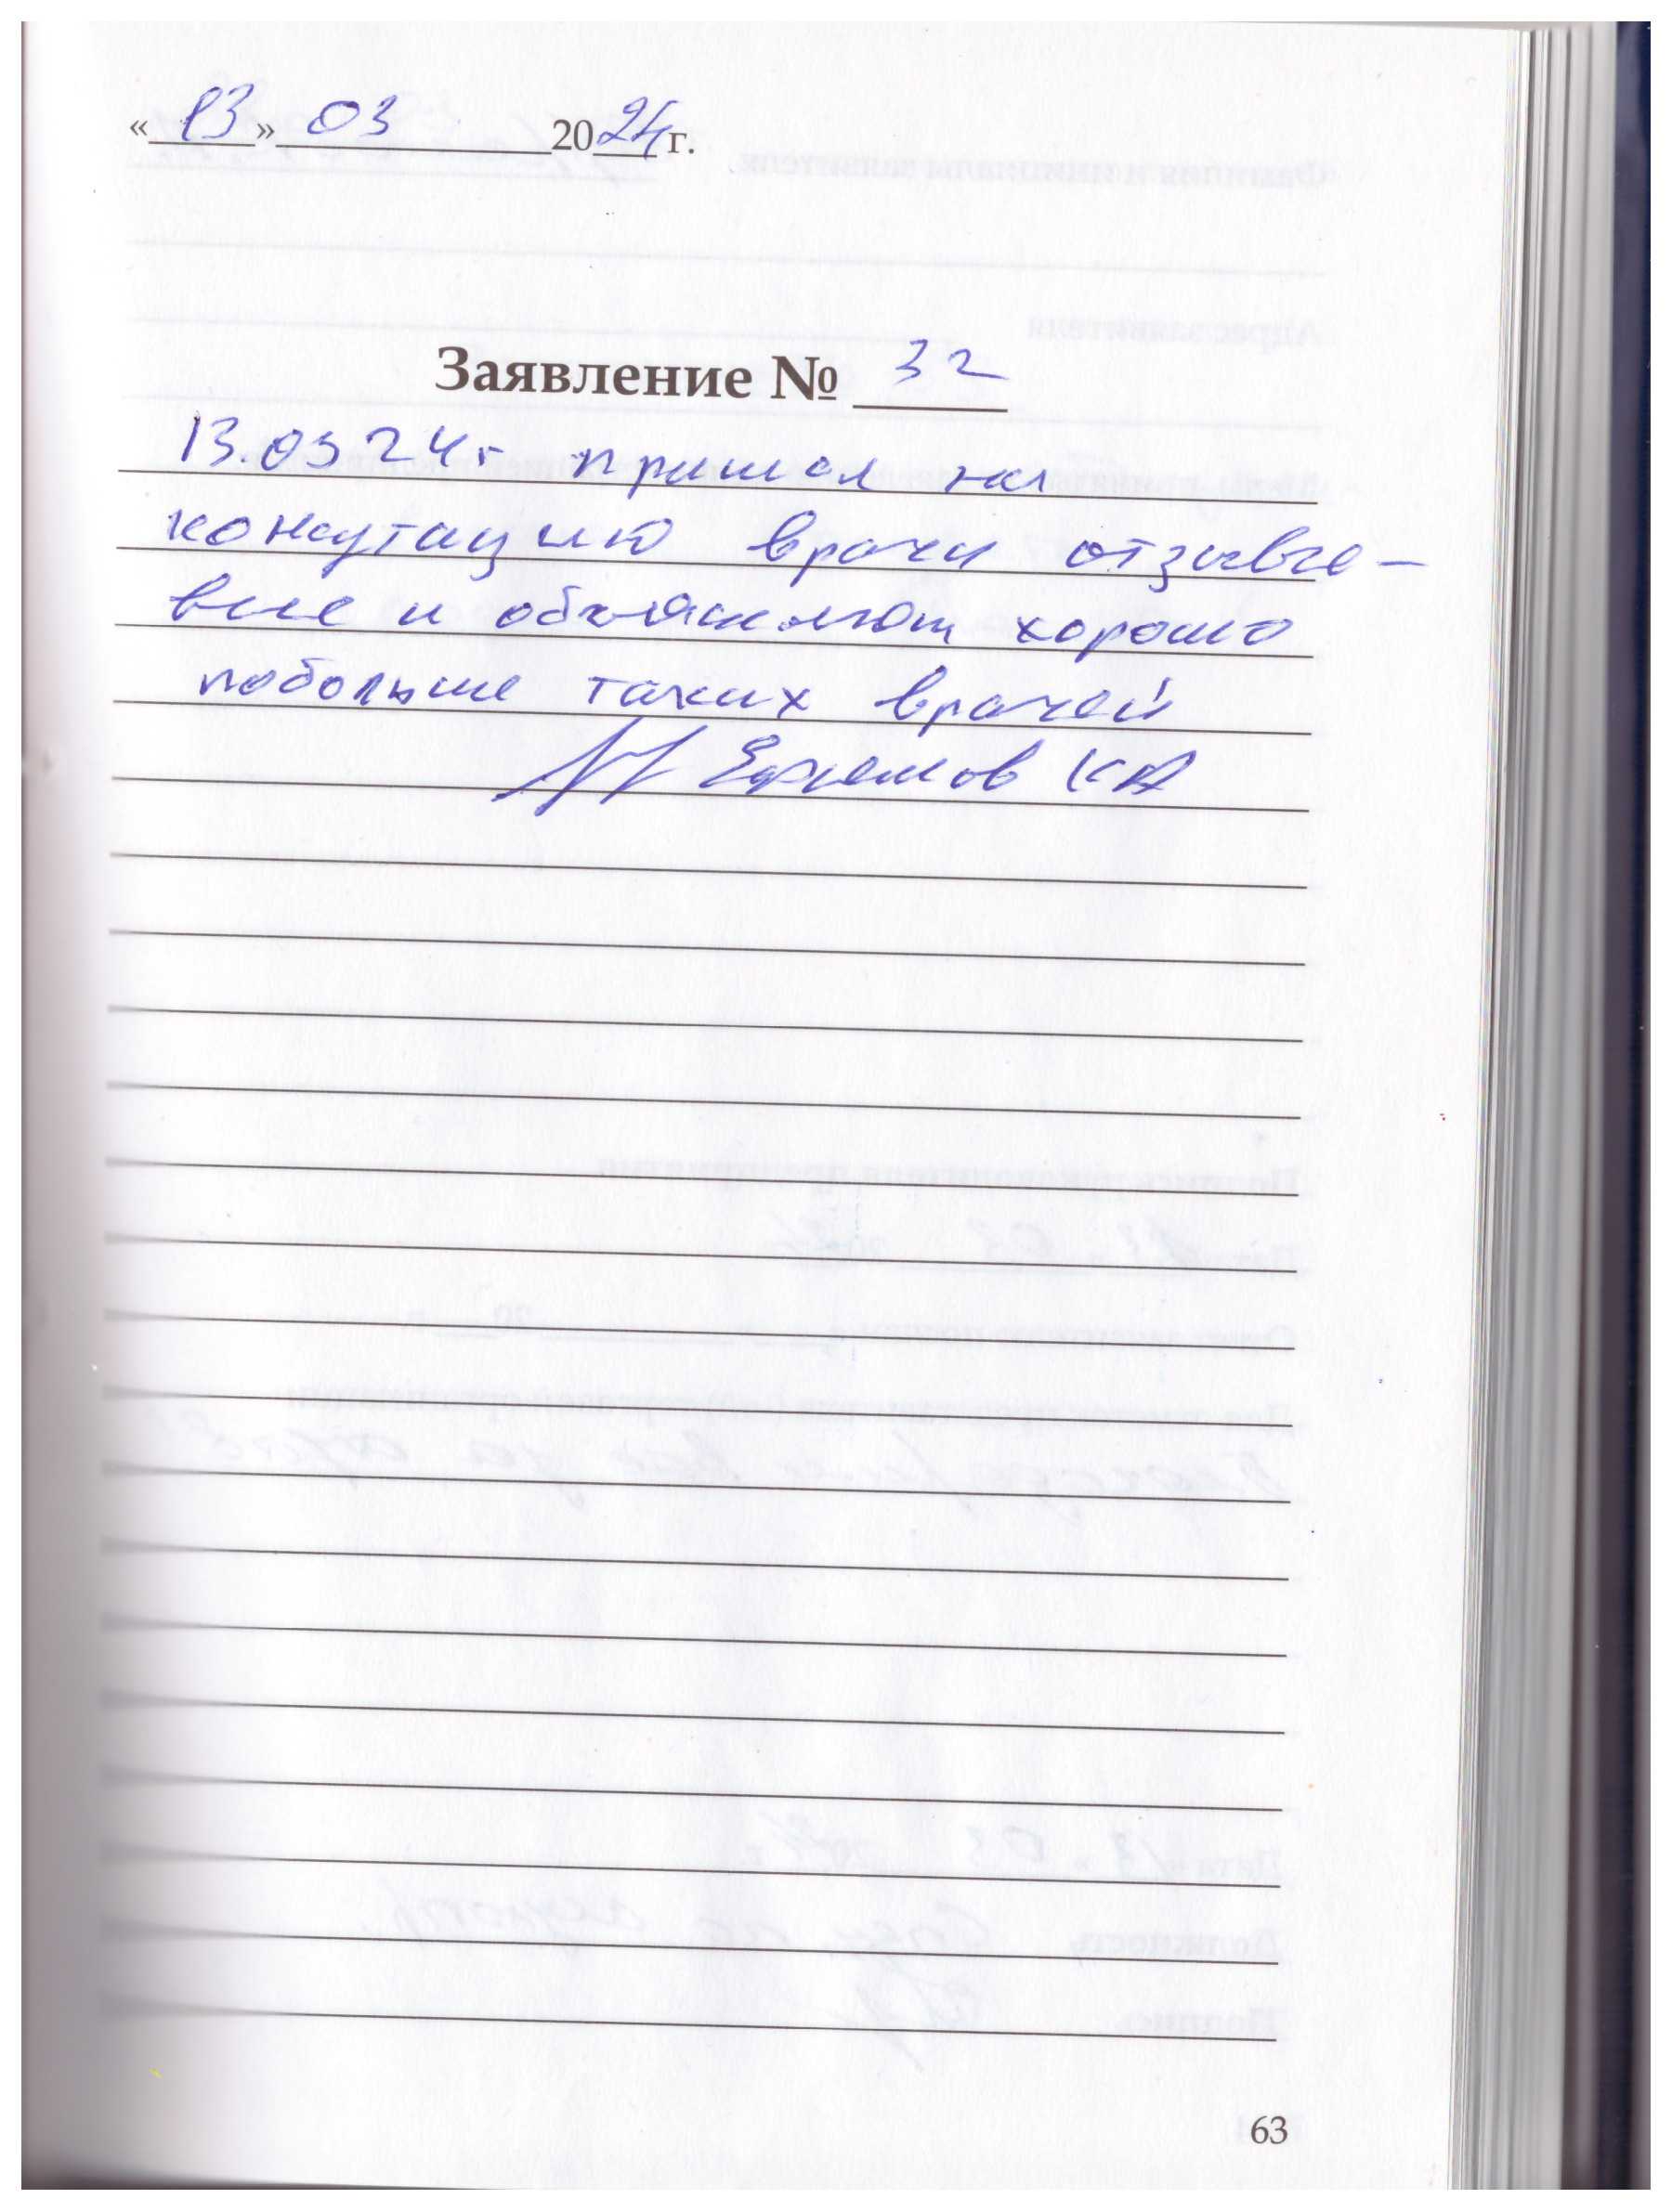 «13» 03 2024 г.
Заявление № 32
13.03 24г пришол на
консутацию врачи отзывче-
вые и объясняют хорошо
побольше таких врачей
Ефремов КА
63